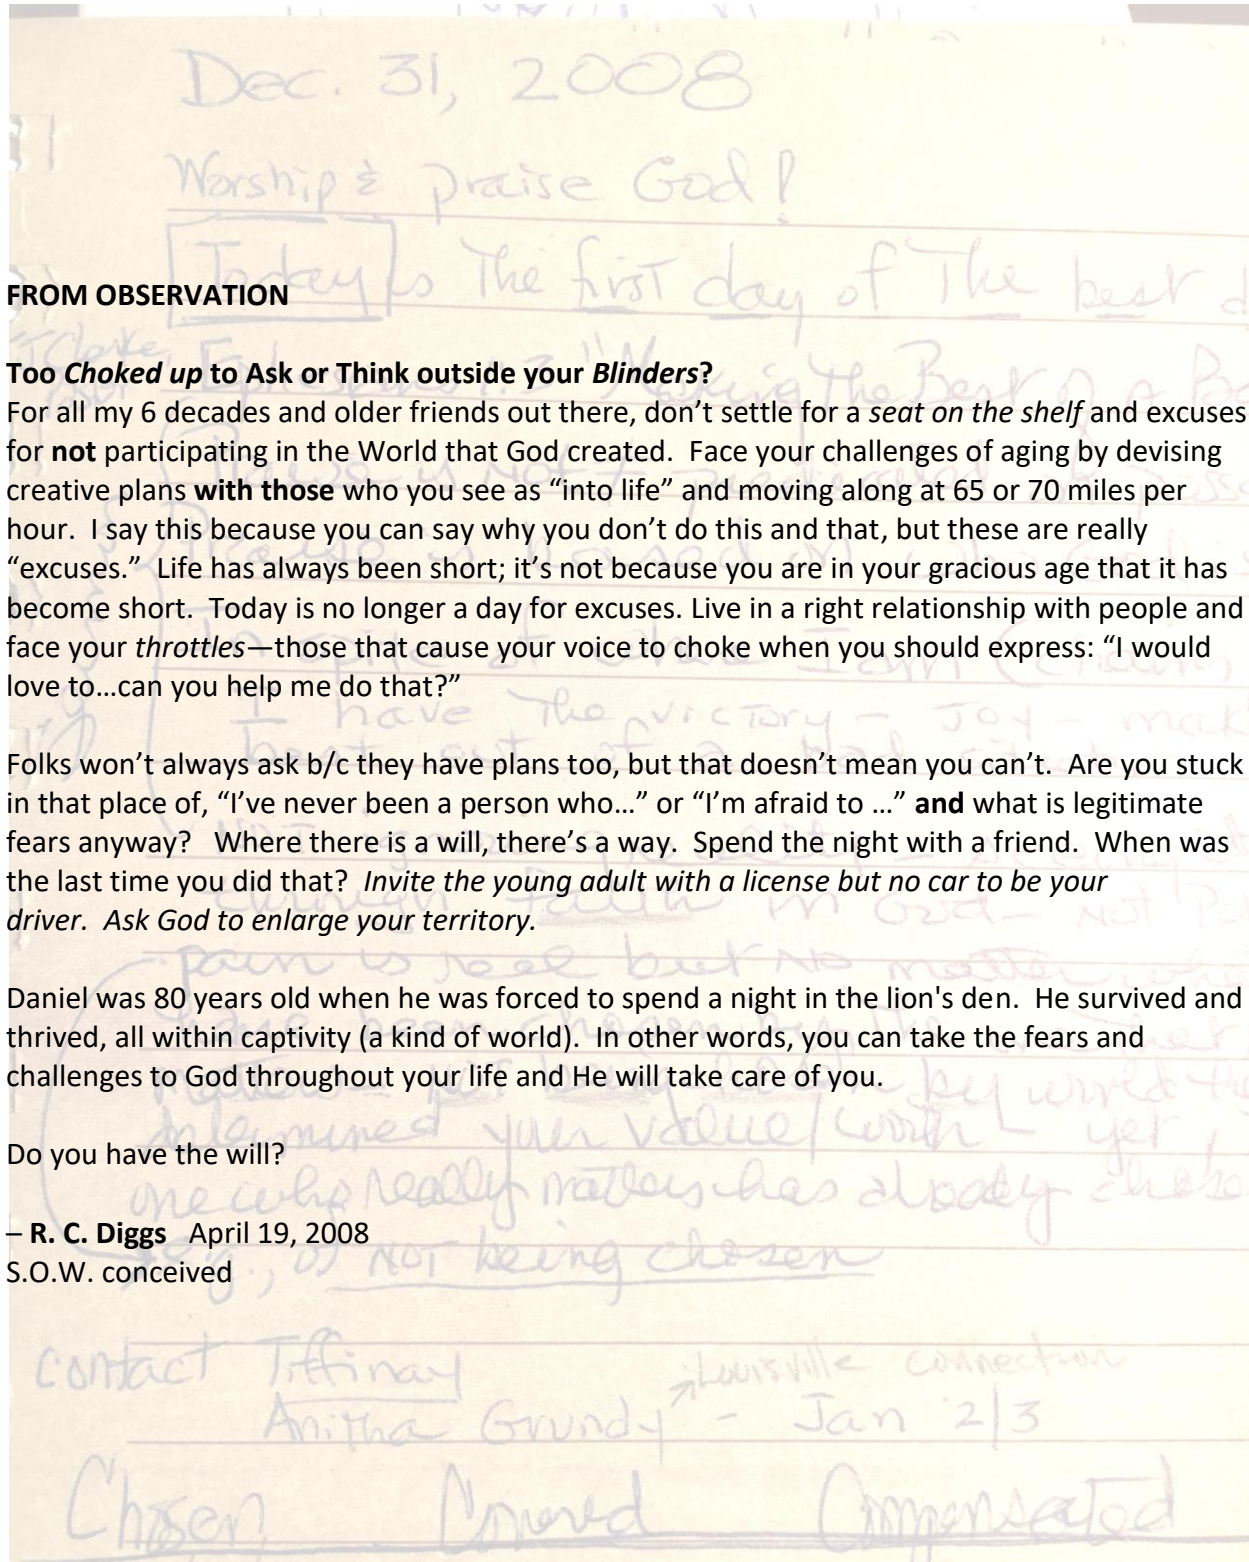 Dec. 31, 2008
Worship & praise God!
Today is The first day of The best d
FROM OBSERVATION
Too Choked up to Ask or Think outside your Blinders?
For all my 6 decades and older friends out there, don’t settle for a seat on the shelf and excuses
for not participating in the World that God created.  Face your challenges of aging by devising
creative plans with those who you see as “into life” and moving along at 65 or 70 miles per
hour.  I say this because you can say why you don’t do this and that, but these are really
“excuses.”  Life has always been short; it’s not because you are in your gracious age that it has
become short.  Today is no longer a day for excuses. Live in a right relationship with people and
face your throttles—those that cause your voice to choke when you should express: “I would
love to…can you help me do that?”
I have The victory - Joy - mak
Folks won’t always ask b/c they have plans too, but that doesn’t mean you can’t.  Are you stuck
in that place of, “I’ve never been a person who…” or “I’m afraid to …” and what is legitimate
fears anyway?   Where there is a will, there’s a way.  Spend the night with a friend.  When was
the last time you did that?  Invite the young adult with a license but no car to be your
driver.  Ask God to enlarge your territory.
pain is real but No matter
Daniel was 80 years old when he was forced to spend a night in the lion's den.  He survived and
thrived, all within captivity (a kind of world).  In other words, you can take the fears and
challenges to God throughout your life and He will take care of you.
determined your value/worth - yet
Do you have the will?
one who really matters has already chose
– R. C. Diggs   April 19, 2008
of NOT being chosen
S.O.W. conceived
Contact Tiffinay
Louisville connection
Anitha Grundy - Jan 2/3
Chosen Covered Compensated